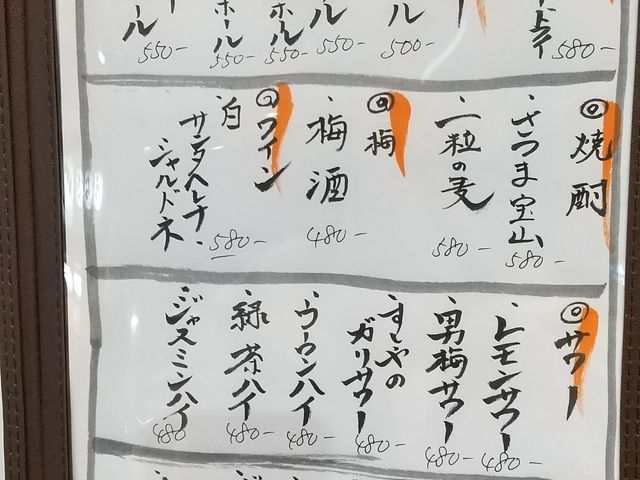 ール
550-
ホール
550-
ホール
550-
ール
550-
ル
500-
ドライ
580-
◎焼酎
・さつま宝山
580-
・一粒の麦
580-
◎梅
・梅酒
480-
◎ワイン
・白
サンタヘレナ・
シャルドネ
580-
◎サワー
・レモンサワー
480-
・男梅サワー
480-
・すしやの
ガリサワー
480-
・ウーロンハイ
480-
・緑茶ハイ
480-
・ジャスミンハイ
480